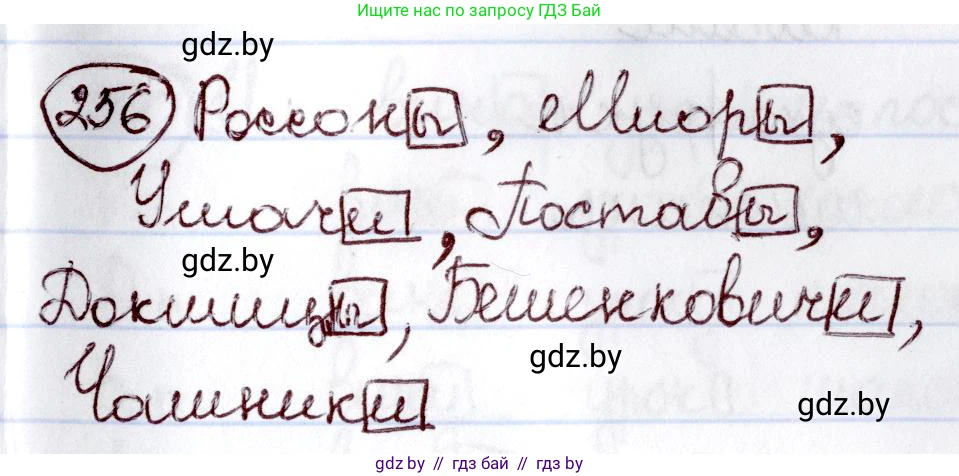 Ищите нас по запросу ГДЗ Бай
gdz.by
256 Россоны, Миоры,
Ушачи, Поставы,
gdz.by
Докшицы, Бешенковичи,
gdz.by
Чашники
gdz.by
gdz.by // гдз бай // гдз by